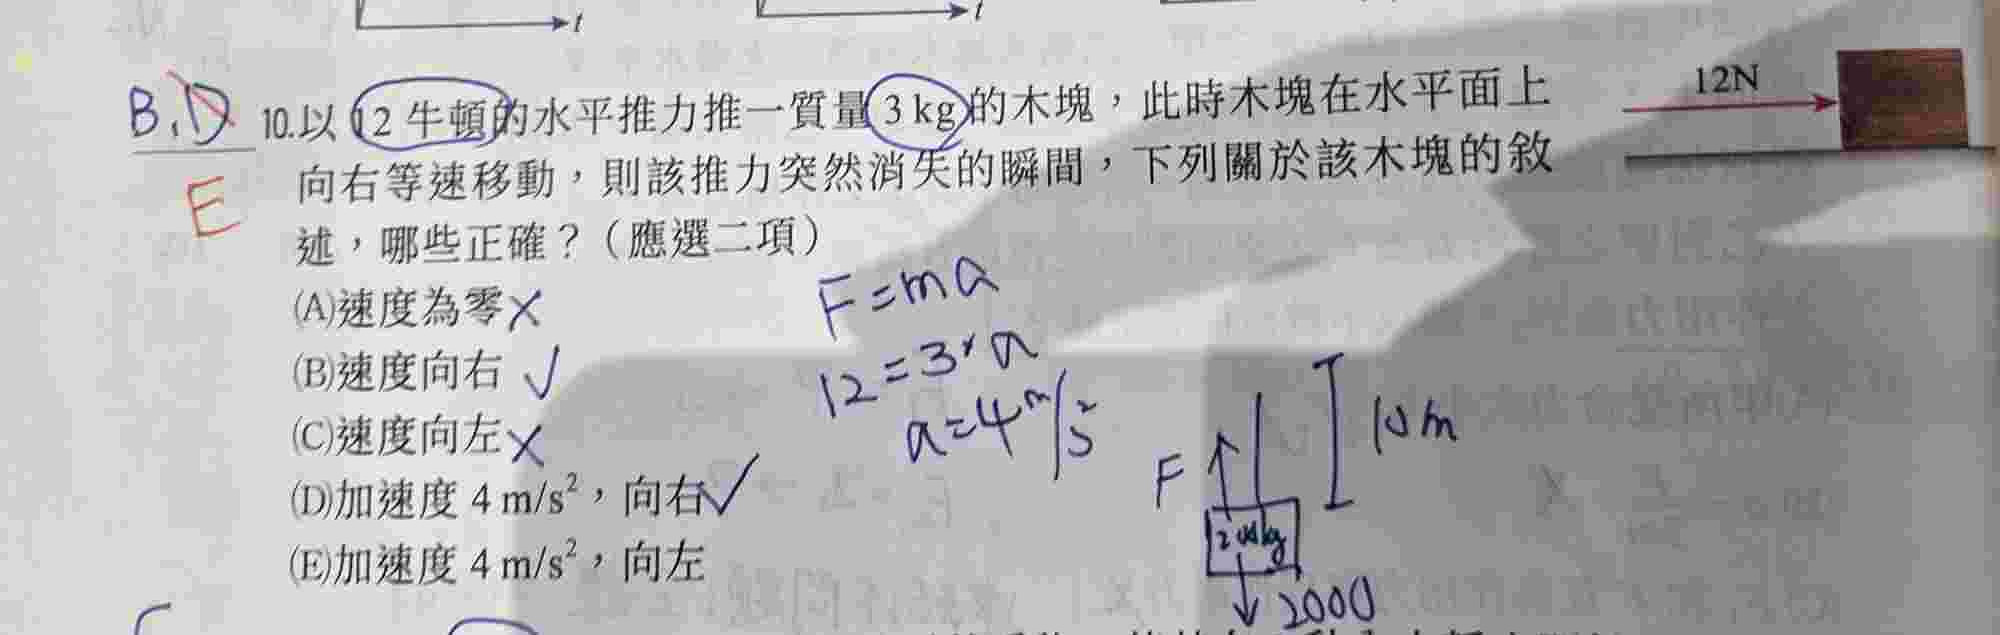 t
t
B.D
E
10.以12牛頓的水平推力推一質量3 kg的木塊，此時木塊在水平面上
向右等速移動，則該推力突然消失的瞬間，下列關於該木塊的敘
述，哪些正確？（應選二項）
12N
(A)速度為零×
(B)速度向右✓
(C)速度向左×
(D)加速度 4 m/s²，向右✓
(E)加速度 4 m/s²，向左
F=ma
12=3×a
a=4m/s²
F
10m
200kg
2000